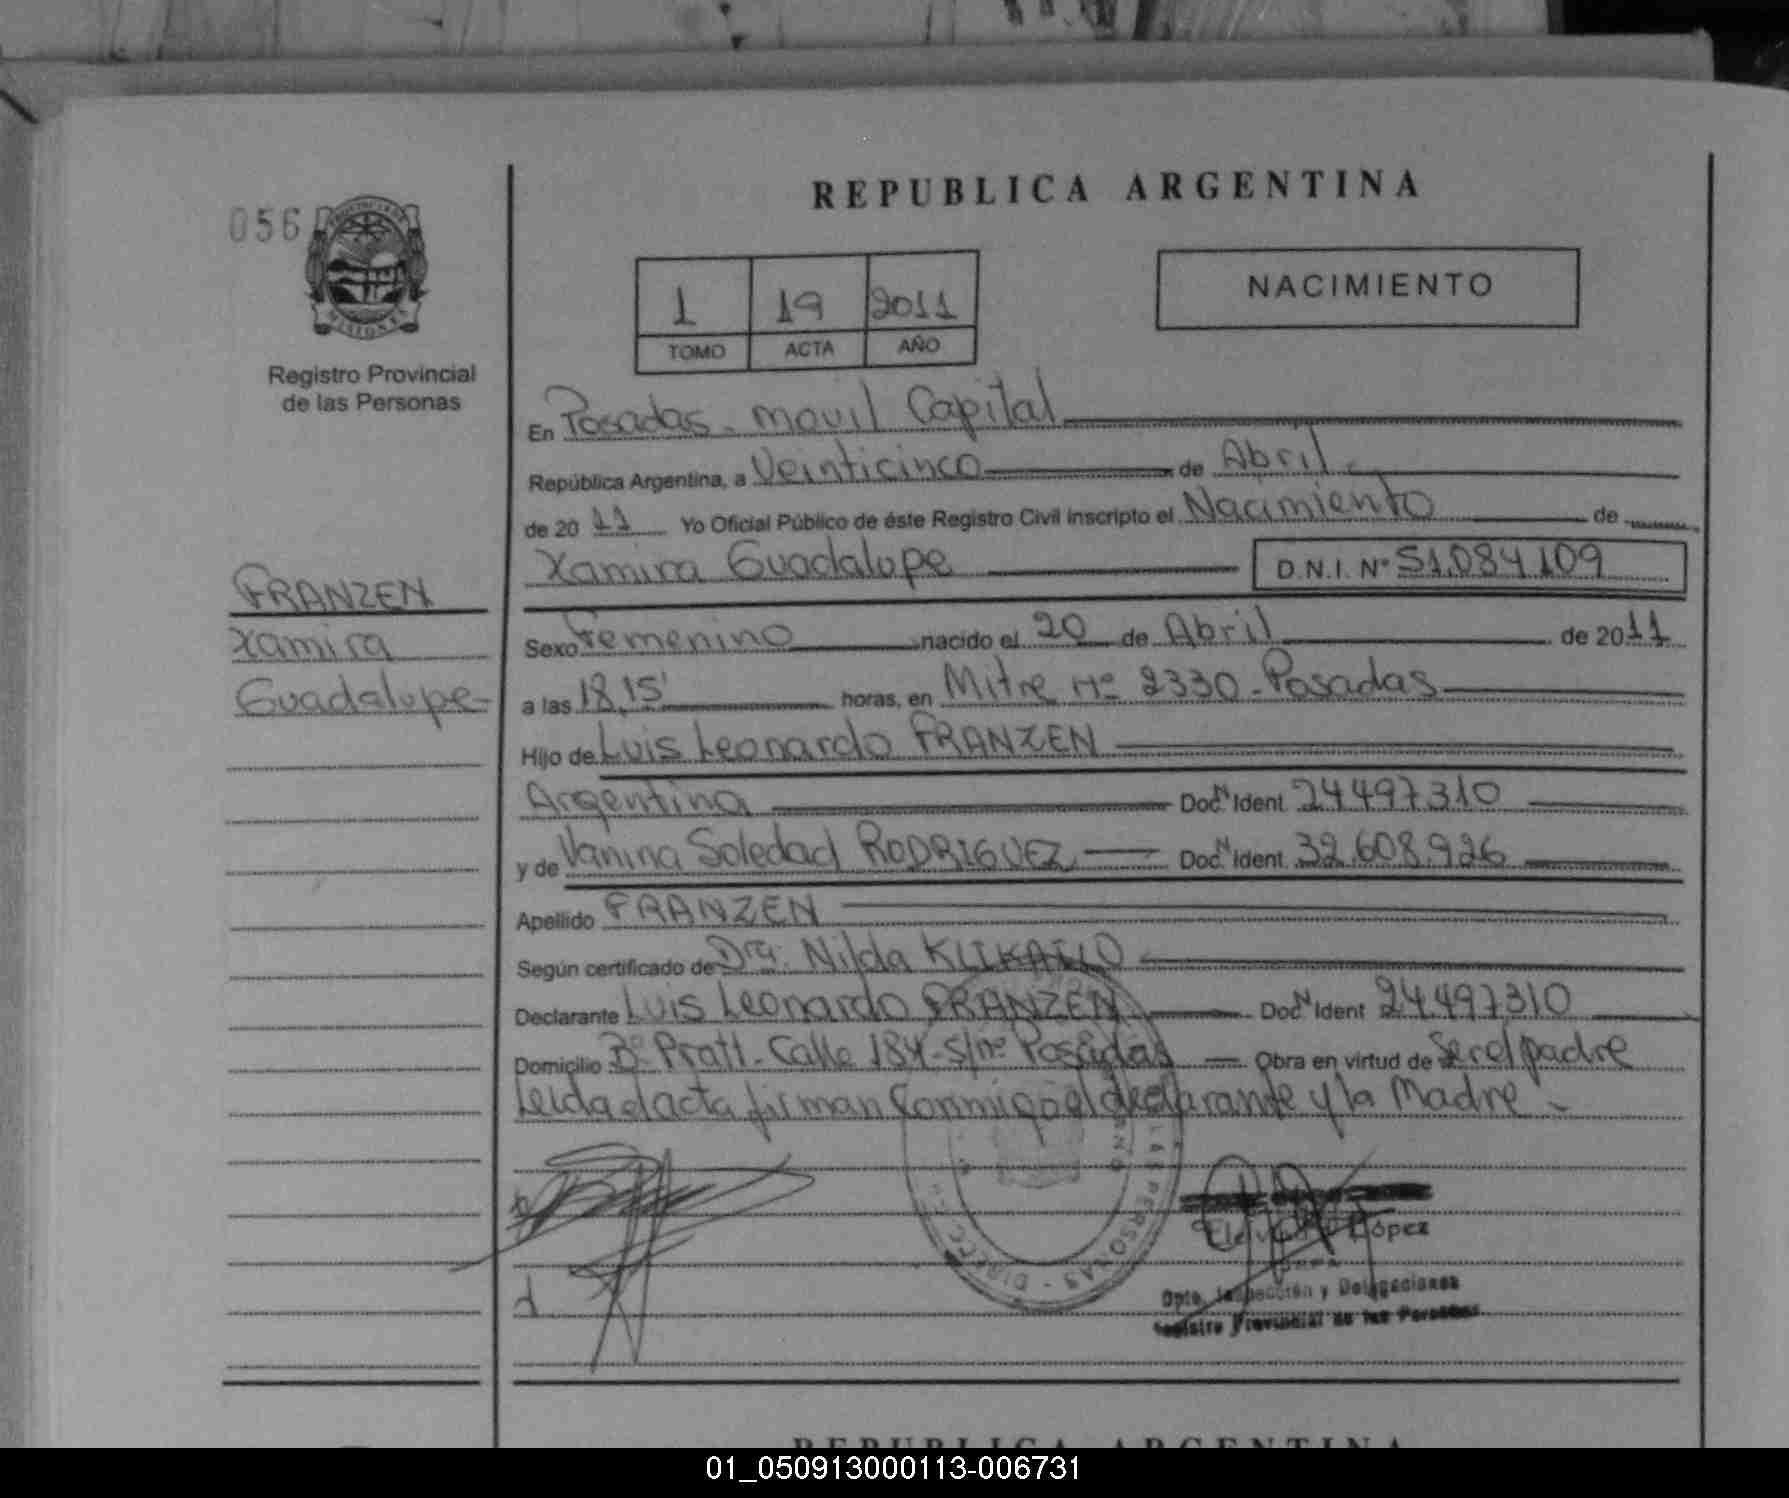 REPUBLICA ARGENTINA
056
PROVINCIA DE
MISIONES
Registro Provincial
de las Personas
1 19 2011
TOMO ACTA AÑO
NACIMIENTO
En Posadas - movil Capital
República Argentina, a Veinticinco de Abril
de 20 11 Yo Oficial Público de éste Registro Civil inscripto el Nacimiento de
Xamira Guadalupe D.N.I. Nº 51.084.109
FRANZEN
Xamira
Guadalupe-
Sexo Femenino nacido el 20 de Abril de 2011
a las 18,15' horas, en Mitre Nº 2330 - Posadas
Hijo de Luis Leonardo FRANZEN
Argentina Doc. N Ident 24497310
y de Vanina Soledad RODRIGUEZ Doc. N Ident 32.608.926
Apellido FRANZEN
Según certificado de Dra. Nilda
Declarante Luis Leonardo FRANZEN Doc. N Ident 24.497310
Domicilio Bº Pratt - Calle 184 - s/nº Posadas Obra en virtud de Ser el padre
Leida el acta firman conmigo el declarante y la Madre -
LAS PERSONAS - DIRECC
López
Dpto. Inspección y Delegaciones
Registro Provincial de las Personas
REPUBLICA ARGENTINA
01_050913000113-006731